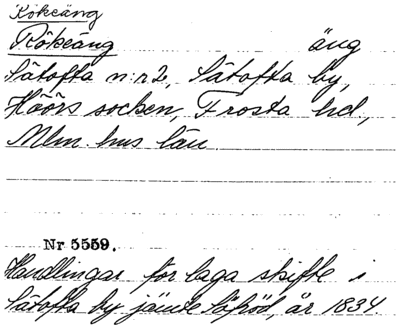 Kökeäng
Kökeäng äng
Sätofta n:r 2, Sätofta by,
Höörs socken, Frosta hd.,
Mlm. hus län.
Nr 5559.
Handlingar för laga skifte i
Sätofta by jämte Säfröd, år 1834.